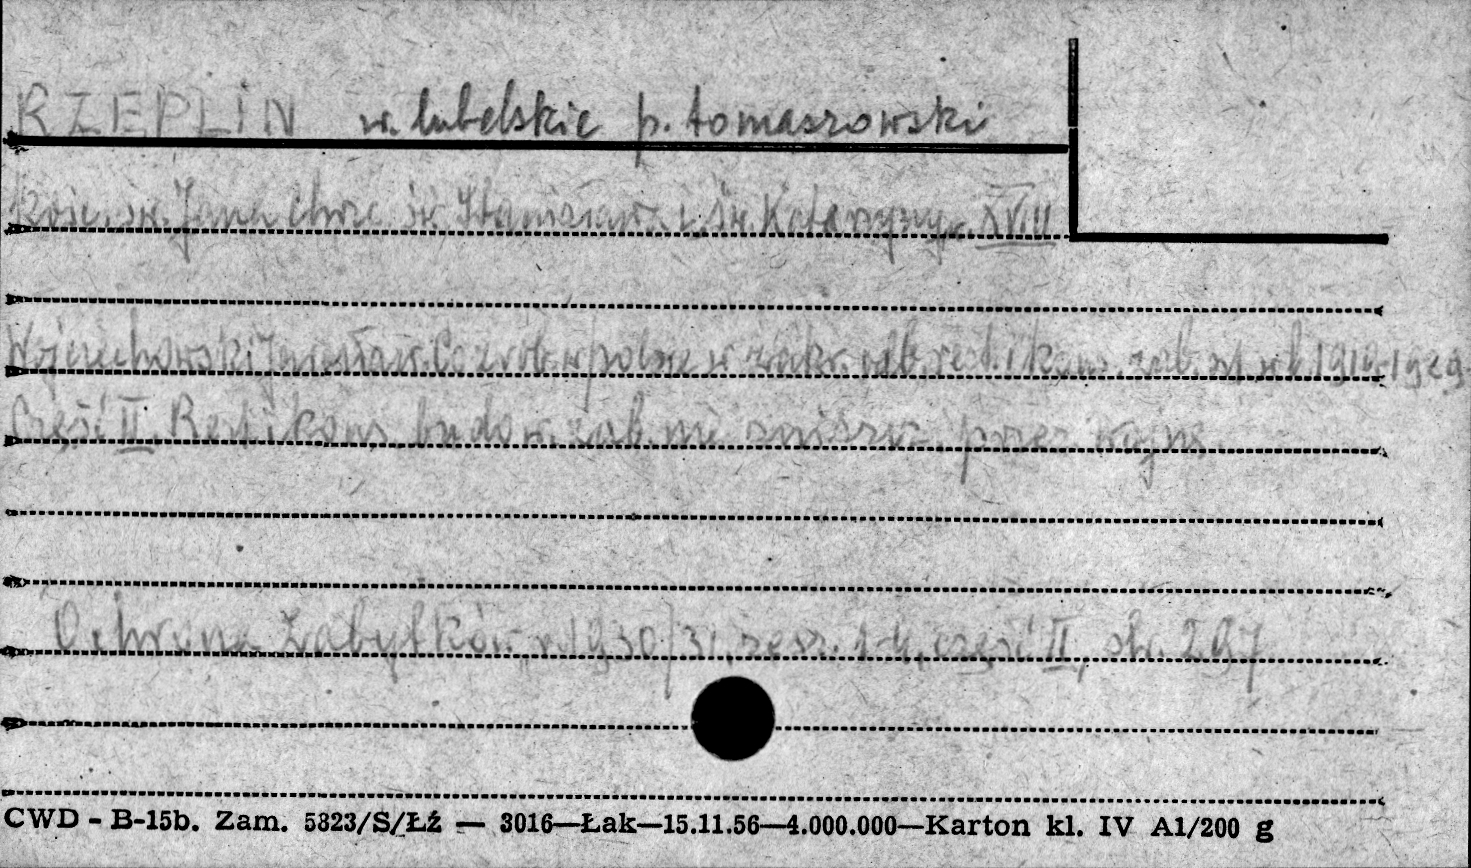 RZEPLIN w. lubelskie p. tomaszowski
Kość. św. Jana Chrzc. św. Stanisława i św. Katarzyny w. XVIII
Wojciechowski Jarosław. Co zrob. w Polsce w zakr. odb. rest. i kons. zab. szt. od 1919-1929.
Część II. Rest. i kons. budow. zab. nie zniszcz. przez wojnę.
Ochrona Zabytków r. 1930/31, zesz. 1-4, część II, str. 297
CWD - B-15b. Zam. 5823/S/Łź — 3016—Łak—15.11.56—4.000.000—Karton kl. IV A1/200 g